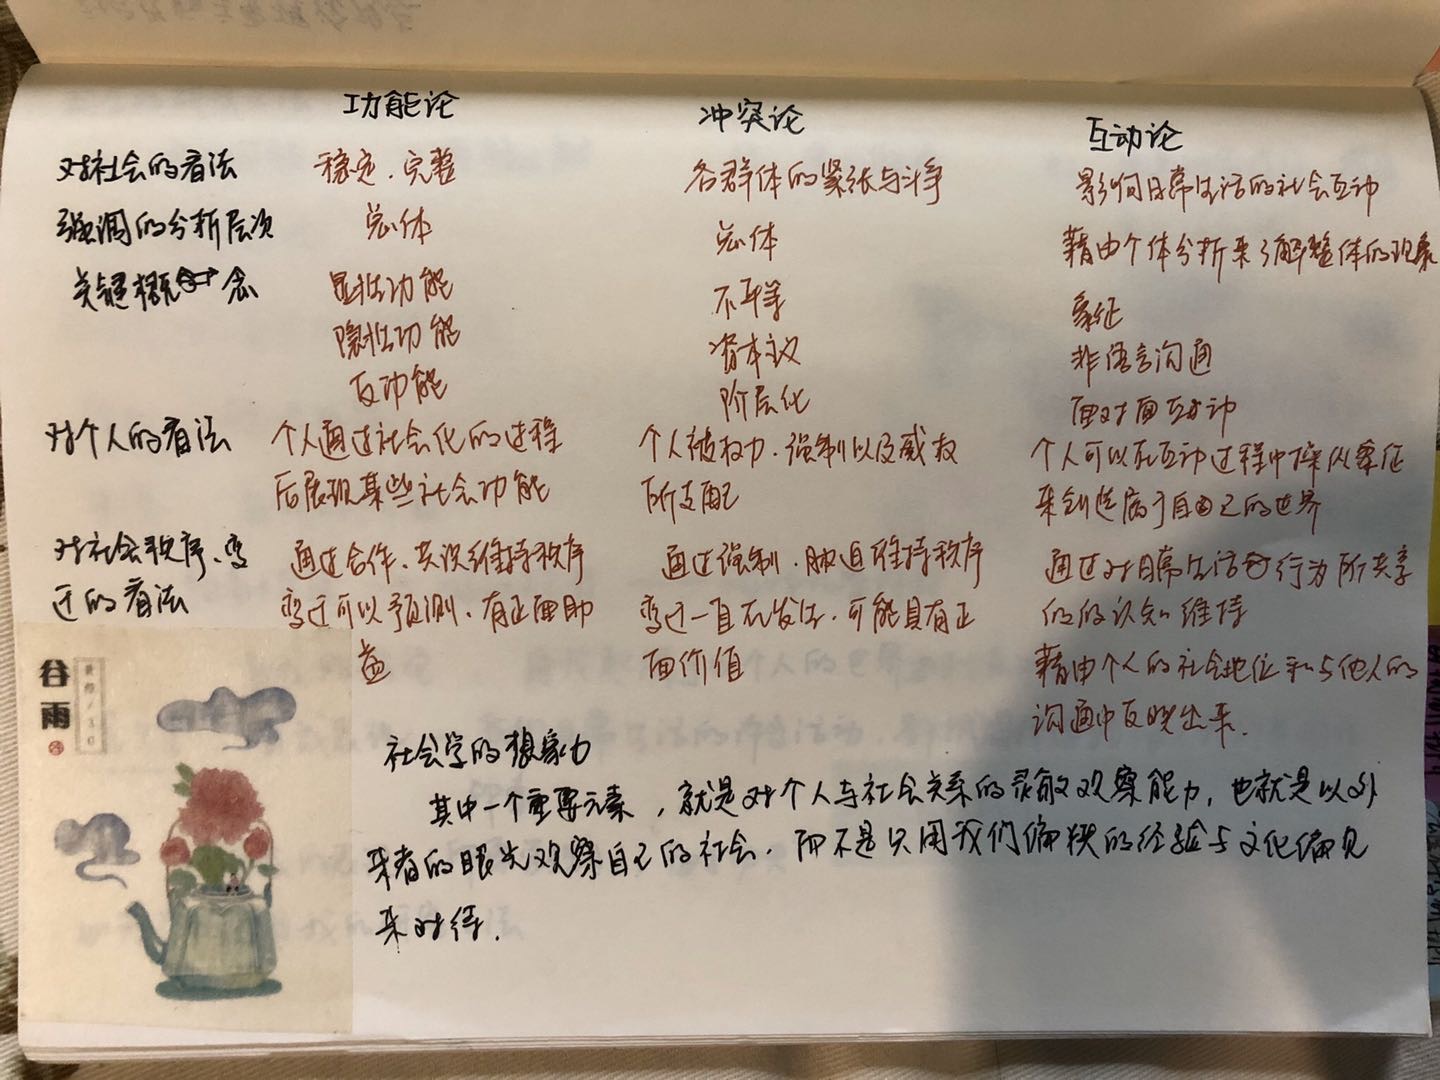 功能论 冲突论 互动论
对社会的看法 稳定、完整 各群体的紧张与斗争 影响日常生活的社会互动
强调的分析层次 总体 总体 藉由个体分析来了解整体的现象
关键概念 显性功能 不平等 象征
隐性功能 资本主义 非语言沟通
反功能 阶层化 面对面互动
对个人的看法 个人通过社会化的过程 个人被权力、强制以及威权 个人可以在互动过程中操纵象征
后展现某些社会功能 所支配 来创造属于自己的世界
对社会秩序、变 通过合作、共识维持秩序 通过强制、胁迫维持秩序 通过对日常生活行为所共享
迁的看法 变迁可以预测、有正面助 变迁一直在发生、可能具有正 的的认知维持
益 面价值 藉由个人的社会地位和与他人的
沟通中反映出来.
谷
雨
社会学的想象力
其中一个重要元素，就是对个人与社会关系的灵敏观察能力，也就是以外
来者的眼光观察自己的社会，而不是只用我们偏狭的经验与文化偏见
来对待.